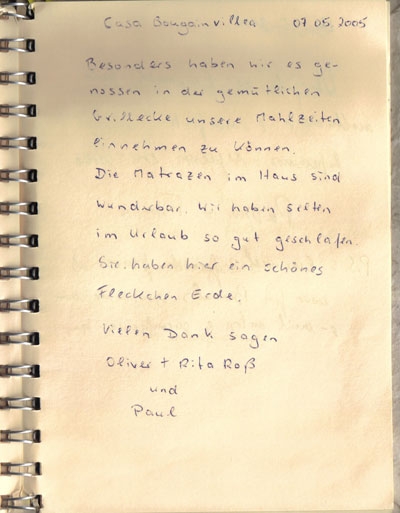 Casa Bougainvillea 07.05.2005
Besonders haben wir es ge-
nossen in der gemütlichen
Grillecke unsere Mahlzeiten
einnehmen zu können.
Die Matrazen im Haus sind
wunderbar. Wir haben selten
im Urlaub so gut geschlafen.
Sie haben hier ein schönes
Fleckchen Erde.
Vielen Dank sagen
Oliver + Rita Roß
und
Paul